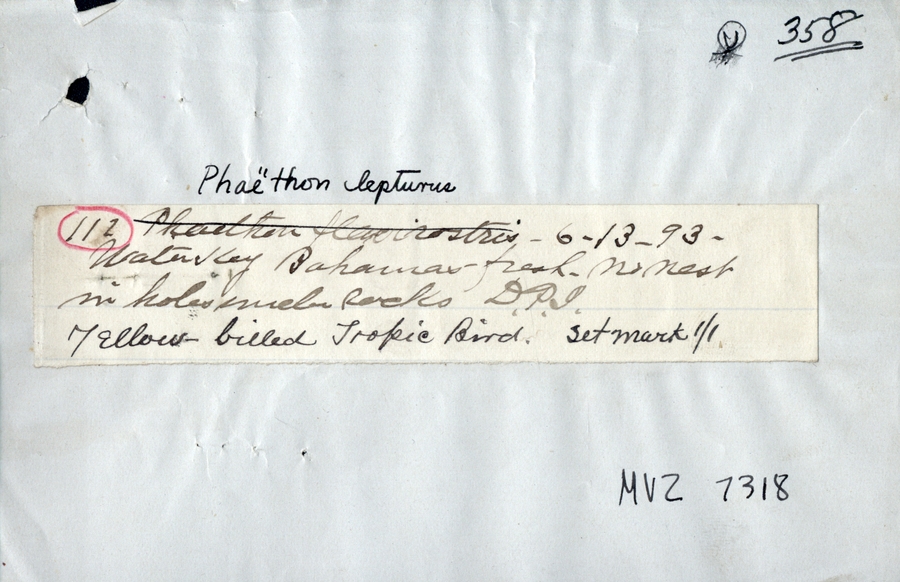 N 358
Phaëthon lepturus
112 Phaethon flavirostris, - 6-13-93-
Water Key Bahamas - fresh - No nest
in holes under rocks D.P.I.
Yellow-billed Tropic Bird. Set mark 1/1
MVZ 7318